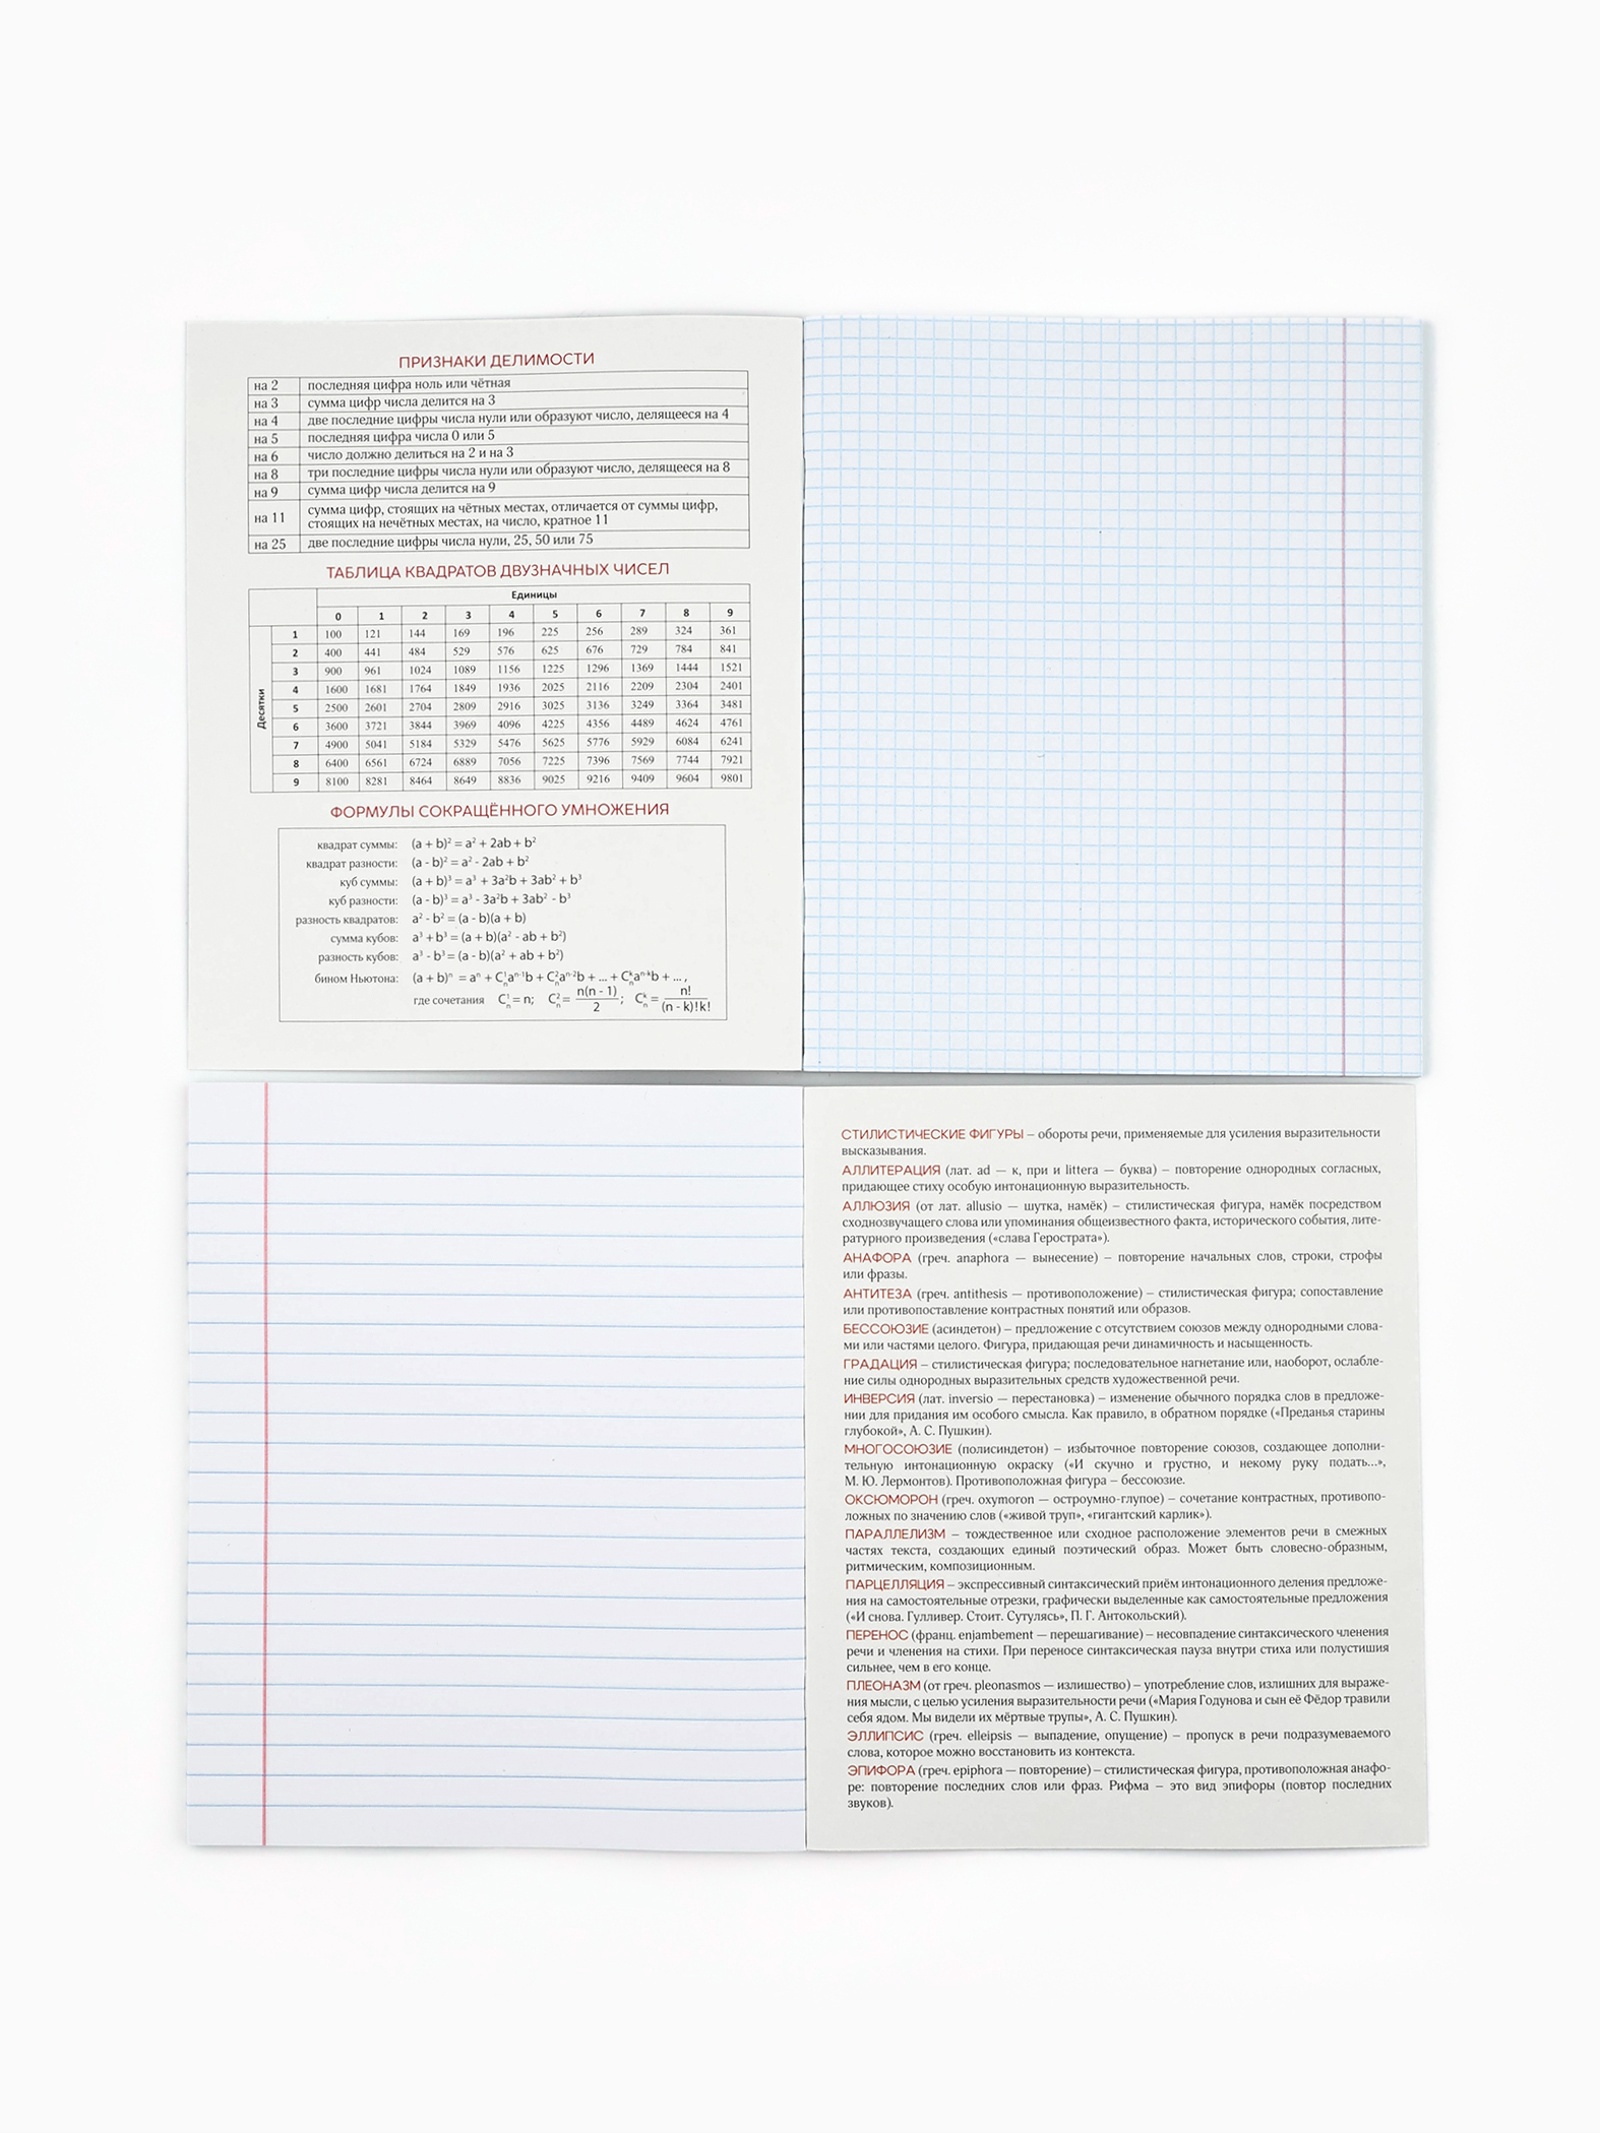 ПРИЗНАКИ ДЕЛИМОСТИ
на 2 последняя цифра ноль или чётная
на 3 сумма цифр числа делится на 3
на 4 две последние цифры числа нули или образуют число, делящееся на 4
на 5 последняя цифра числа 0 или 5
на 6 число должно делиться на 2 и на 3
на 8 три последние цифры числа нули или образуют число, делящееся на 8
на 9 сумма цифр числа делится на 9
на 11 сумма цифр, стоящих на чётных местах, отличается от суммы цифр,
стоящих на нечётных местах, на число, кратное 11
на 25 две последние цифры числа нули, 25, 50 или 75
ТАБЛИЦА КВАДРАТОВ ДВУЗНАЧНЫХ ЧИСЕЛ
Единицы
0 1 2 3 4 5 6 7 8 9
Десятки
1 100 121 144 169 196 225 256 289 324 361
2 400 441 484 529 576 625 676 729 784 841
3 900 961 1024 1089 1156 1225 1296 1369 1444 1521
4 1600 1681 1764 1849 1936 2025 2116 2209 2304 2401
5 2500 2601 2704 2809 2916 3025 3136 3249 3364 3481
6 3600 3721 3844 3969 4096 4225 4356 4489 4624 4761
7 4900 5041 5184 5329 5476 5625 5776 5929 6084 6241
8 6400 6561 6724 6889 7056 7225 7396 7569 7744 7921
9 8100 8281 8464 8649 8836 9025 9216 9409 9604 9801
ФОРМУЛЫ СОКРАЩЁННОГО УМНОЖЕНИЯ
квадрат суммы: (a + b)² = a² + 2ab + b²
квадрат разности: (a - b)² = a² - 2ab + b²
куб суммы: (a + b)³ = a³ + 3a²b + 3ab² + b³
куб разности: (a - b)³ = a³ - 3a²b + 3ab² - b³
разность квадратов: a² - b² = (a - b)(a + b)
сумма кубов: a³ + b³ = (a + b)(a² - ab + b²)
разность кубов: a³ - b³ = (a - b)(a² + ab + b²)
бином Ньютона: (a + b)ⁿ = aⁿ + Cₙ¹aⁿ⁻¹b + Cₙ²aⁿ⁻²b + ... + Cₙᵏaⁿ⁻ᵏb + ... ,
где сочетания Cₙ¹ = n; Cₙ² = n(n - 1)/2; Cₙᵏ = n!/(n - k)!k!
СТИЛИСТИЧЕСКИЕ ФИГУРЫ – обороты речи, применяемые для усиления выразительности
высказывания.
АЛЛИТЕРАЦИЯ (лат. ad — к, при и littera — буква) – повторение однородных согласных,
придающее стиху особую интонационную выразительность.
АЛЛЮЗИЯ (от лат. allusio — шутка, намёк) – стилистическая фигура, намёк посредством
сходнозвучащего слова или упоминания общеизвестного факта, исторического события, лите-
ратурного произведения («слава Герострата»).
АНАФОРА (греч. anaphora — вынесение) – повторение начальных слов, строки, строфы
или фразы.
АНТИТЕЗА (греч. antithesis — противоположение) – стилистическая фигура; сопоставление
или противопоставление контрастных понятий или образов.
БЕССОЮЗИЕ (асиндетон) – предложение с отсутствием союзов между однородными слова-
ми или частями целого. Фигура, придающая речи динамичность и насыщенность.
ГРАДАЦИЯ – стилистическая фигура; последовательное нагнетание или, наоборот, ослабле-
ние силы однородных выразительных средств художественной речи.
ИНВЕРСИЯ (лат. inversio — перестановка) – изменение обычного порядка слов в предложе-
нии для придания им особого смысла. Как правило, в обратном порядке («Преданья старины
глубокой», А. С. Пушкин).
МНОГОСОЮЗИЕ (полисиндетон) – избыточное повторение союзов, создающее дополни-
тельную интонационную окраску («И скучно и грустно, и некому руку подать...»,
М. Ю. Лермонтов). Противоположная фигура – бессоюзие.
ОКСЮМОРОН (греч. oxymoron — остроумно-глупое) – сочетание контрастных, противопо-
ложных по значению слов («живой труп», «гигантский карлик»).
ПАРАЛЛЕЛИЗМ – тождественное или сходное расположение элементов речи в смежных
частях текста, создающих единый поэтический образ. Может быть словесно-образным,
ритмическим, композиционным.
ПАРЦЕЛЛЯЦИЯ – экспрессивный синтаксический приём интонационного деления предложе-
ния на самостоятельные отрезки, графически выделенные как самостоятельные предложения
(«И снова. Гулливер. Стоит. Сутулясь», П. Г. Антокольский).
ПЕРЕНОС (франц. enjambement — перешагивание) – несовпадение синтаксического членения
речи и членения на стихи. При переносе синтаксическая пауза внутри стиха или полустишия
сильнее, чем в его конце.
ПЛЕОНАЗМ (от греч. pleonasmos — излишество) – употребление слов, излишних для выраже-
ния мысли, с целью усиления выразительности речи («Мария Годунова и сын её Фёдор травили
себя ядом. Мы видели их мёртвые трупы», А. С. Пушкин).
ЭЛЛИПСИС (греч. elleipsis — выпадение, опущение) – пропуск в речи подразумеваемого
слова, которое можно восстановить из контекста.
ЭПИФОРА (греч. epiphora — повторение) – стилистическая фигура, противоположная анафо-
ре: повторение последних слов или фраз. Рифма – это вид эпифоры (повтор последних
звуков).